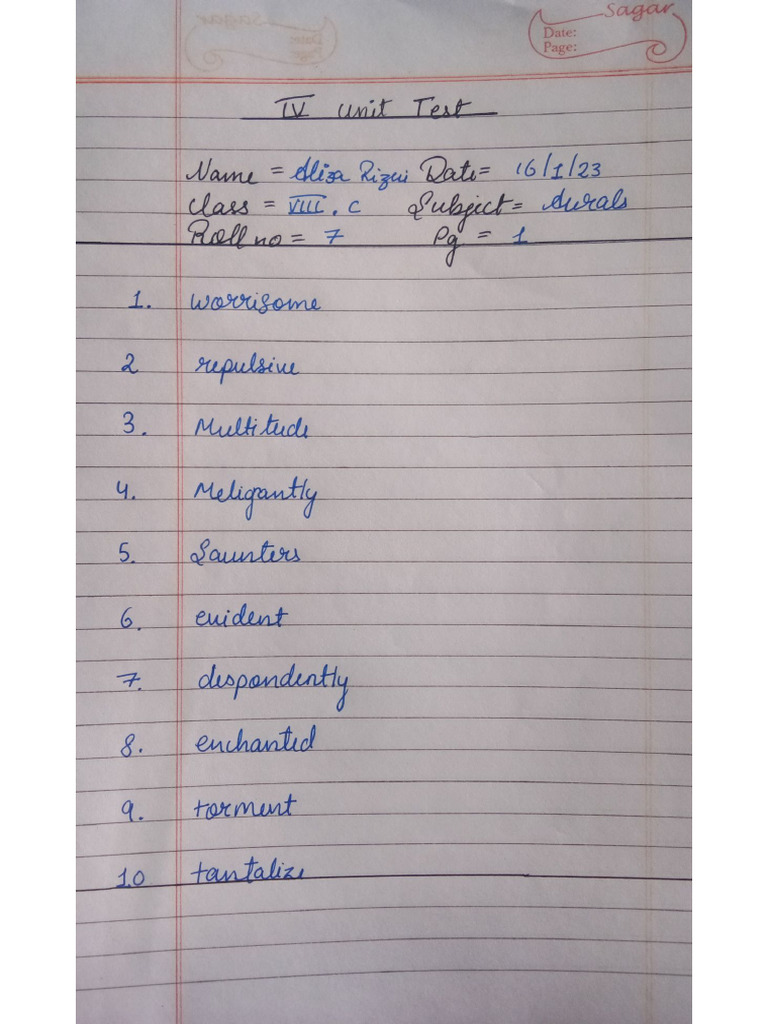 Sagar
Date:
Page:
IV Unit Test
Name = Aliza Rizvi Date= 16/1/23
Class = VIII. C Subject = Aurals
Roll no = 7 Pg = 1
1. worrisome
2 repulsive
3. Multitude
4. Meligantly
5. Saunters
6. evident
7. despondently
8. enchanted
9. torment
10 tantalize